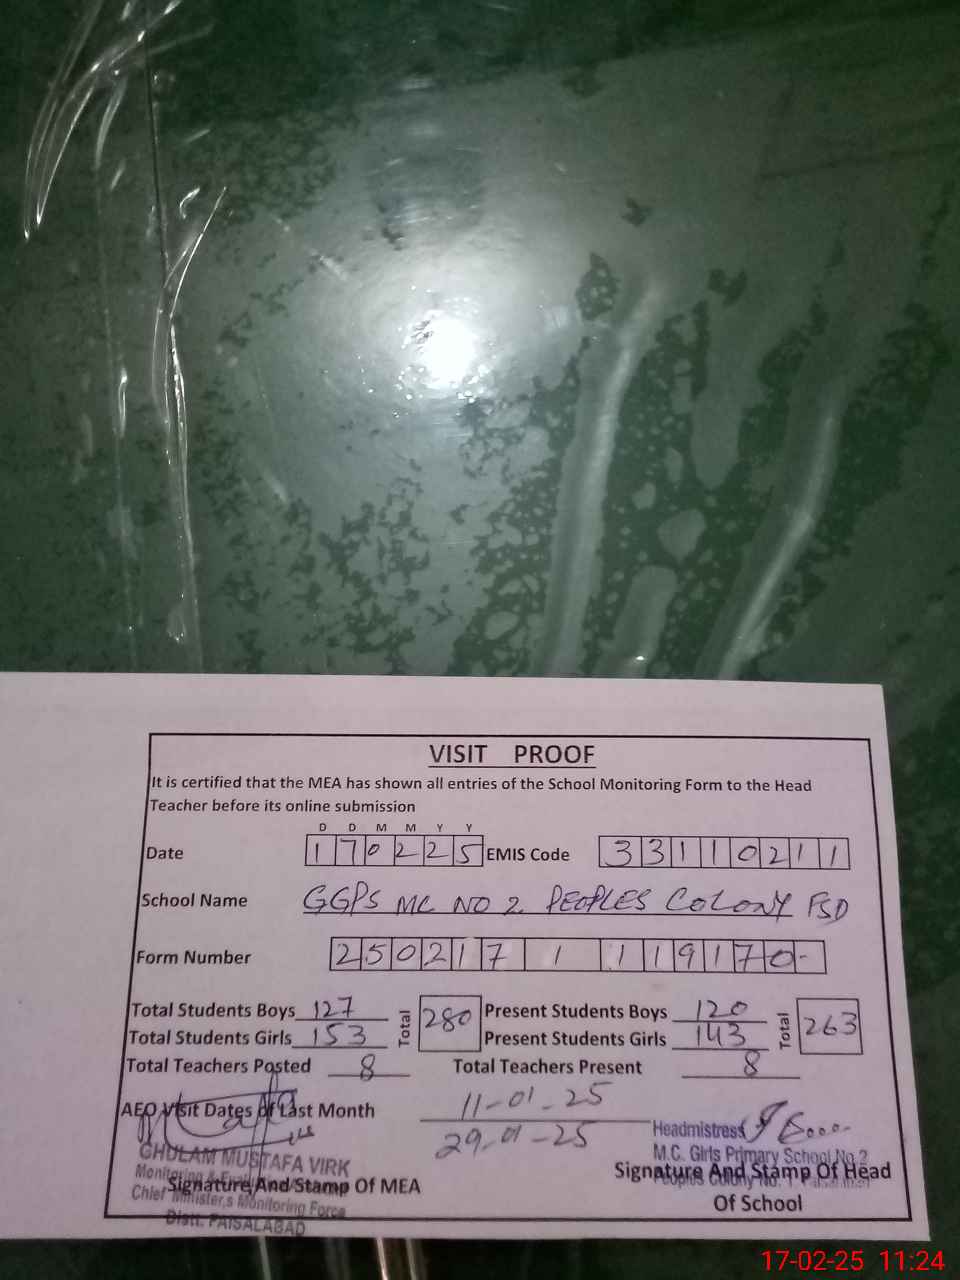 VISIT PROOF
It is certified that the MEA has shown all entries of the School Monitoring Form to the Head
Teacher before its online submission
D D M M Y Y
Date 170225 EMIS Code 33110211
School Name GGPS MC NO 2 PEOPLES COLONY FSD
Form Number 250217 1 119170-
Total Students Boys 127 Total 280 Present Students Boys 120 Total 263
Total Students Girls 153 Present Students Girls 143
Total Teachers Posted 8 Total Teachers Present 8
AEO Visit Dates of Last Month 11-01-25
29-01-25
Headmistress
GHULAM MUSTAFA VIRK M.C. Girls Primary School No.2
Monitoring & Peoples Colony No. 1
Signature And Stamp Of MEA Signature And Stamp Of Head
Chief Minister,s Monitoring Force Of School
Distt. FAISALABAD
17-02-25 11:24